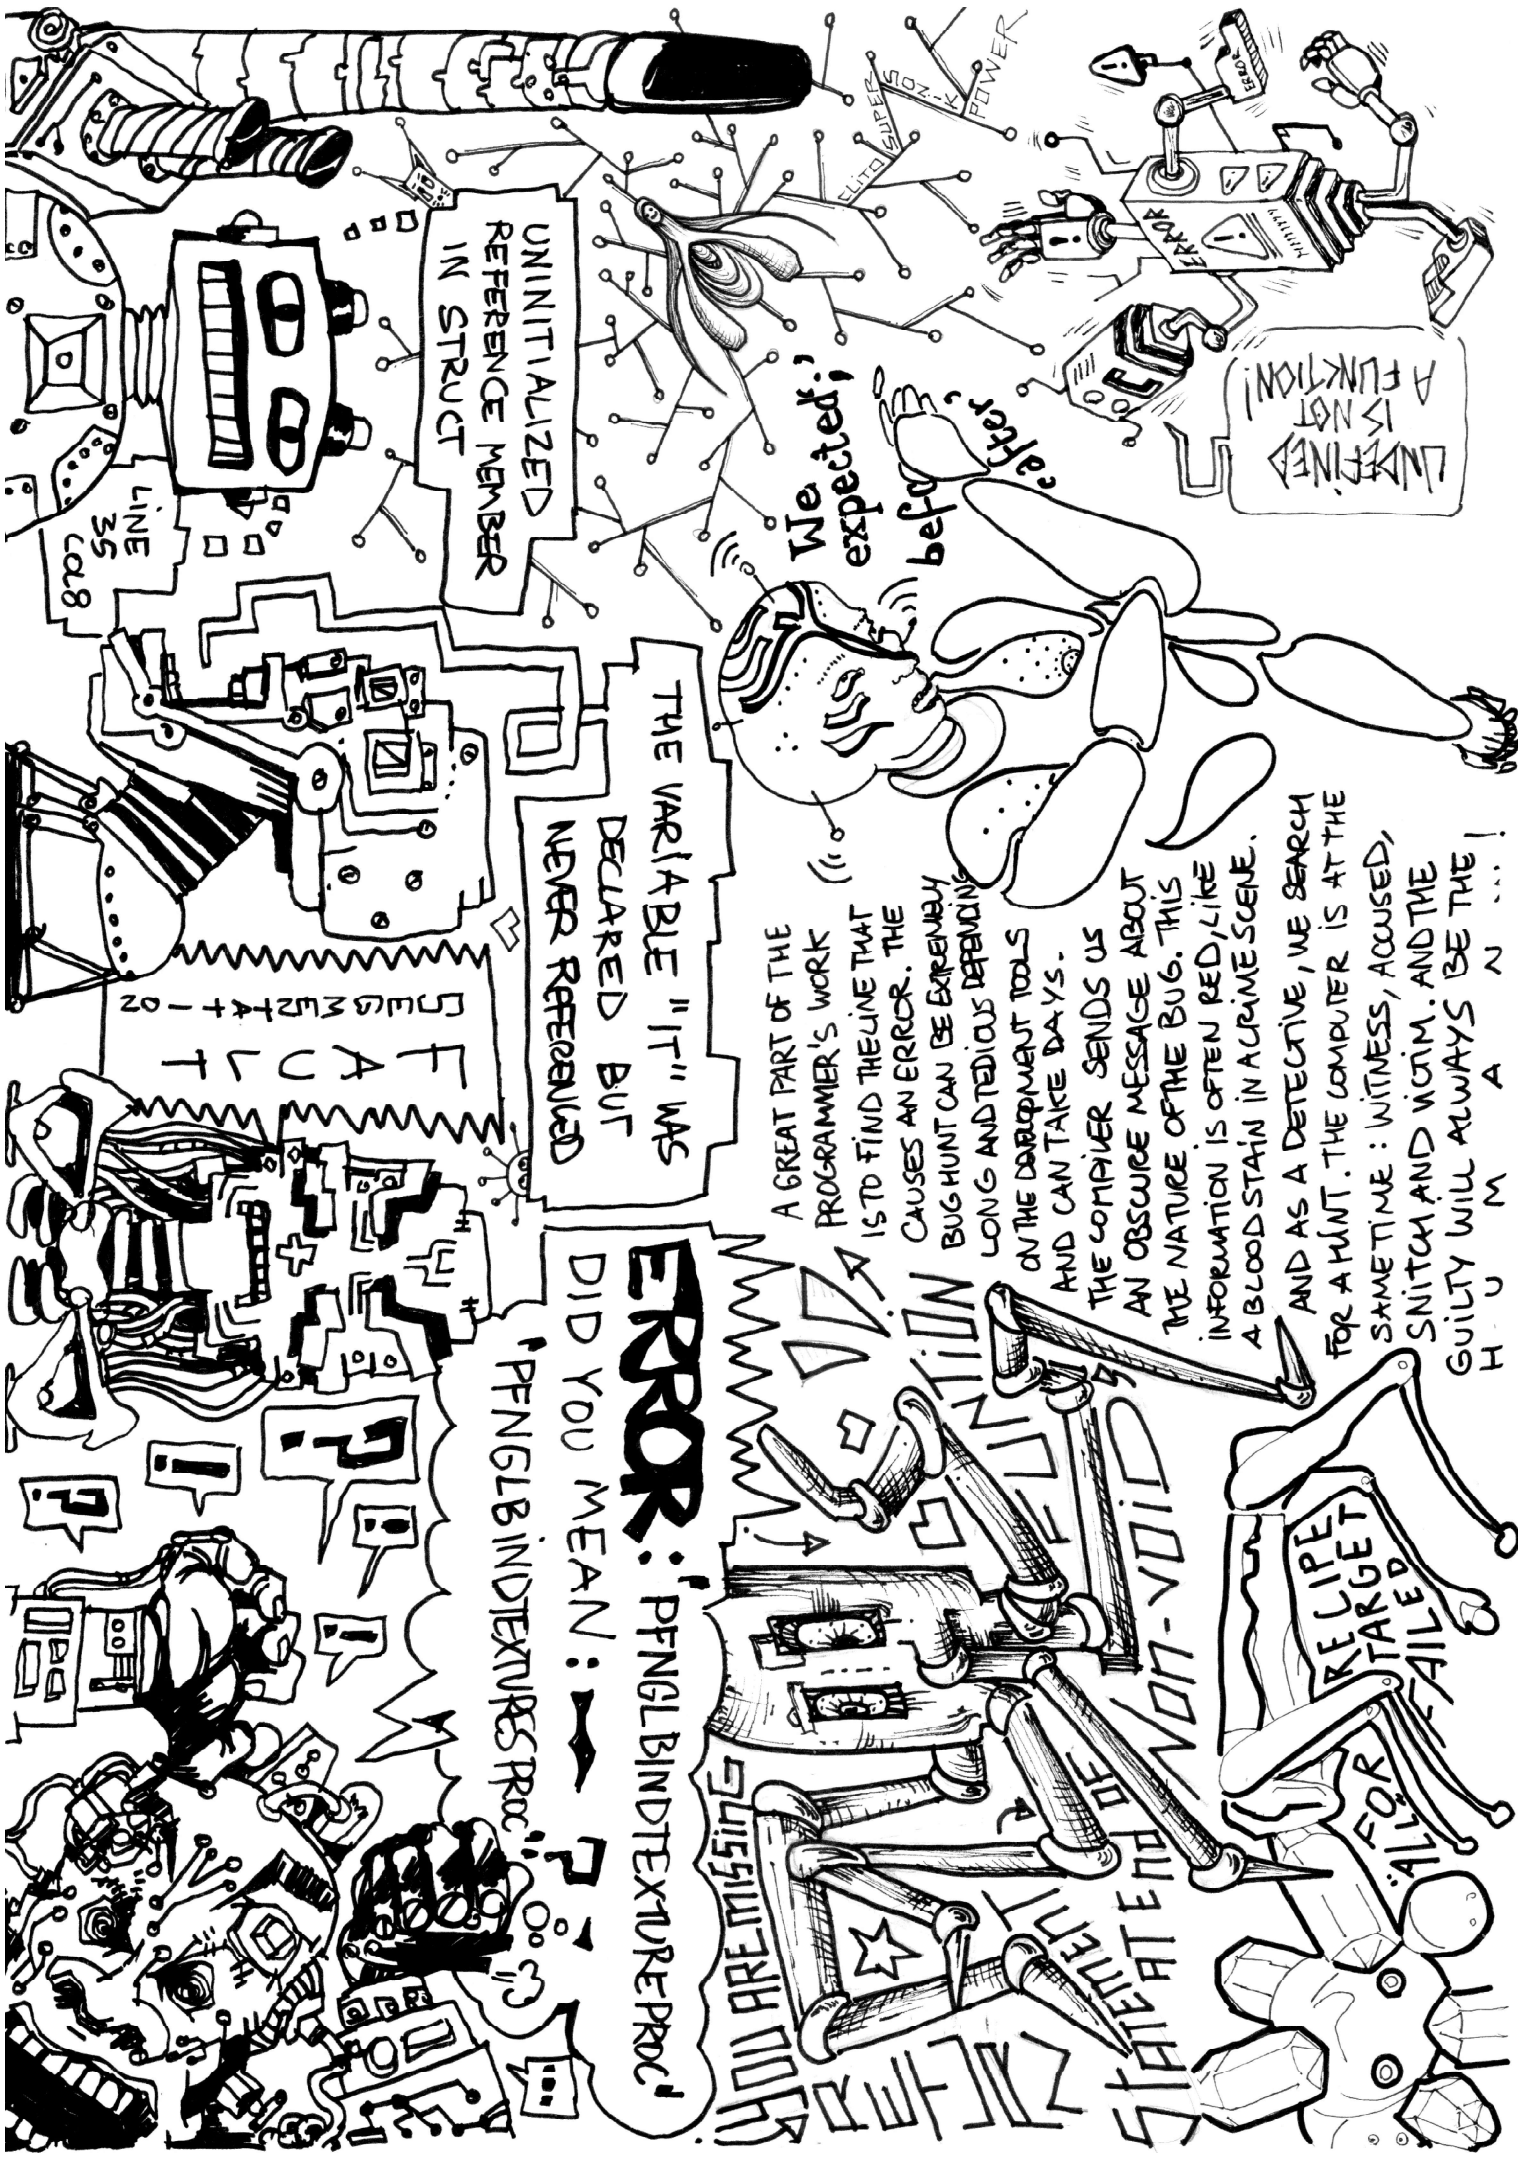 UNINITIALIZED
REFERENCE MEMBER
IN STRUCT
LINE
35
COL8
THE VARIABLE "IT" WAS
DECLARED BUT
NEVER REFERENCED
SEGMENTATION
FAULT
ERROR: 'PFNGLBINDTEXTUREPROC'
DID YOU MEAN:
'PFNGLBINDTEXTURESPROC'
?
?
!
?
!
!
...
SUPER
SONIK
POWER
ERROR
ERROR
UNDEFINED
IS NOT
A FUNKTION!
We
expected ';'
before
'after'
A GREAT PART OF THE
PROGRAMMER'S WORK
IS TO FIND THE LINE THAT
CAUSES AN ERROR. THE
BUG HUNT CAN BE EXTREMELY
LONG AND TEDIOUS DEPENDING
ON THE DEVELOPMENT TOOLS
AND CAN TAKE DAYS.
THE COMPILER SENDS US
AN OBSCURE MESSAGE ABOUT
THE NATURE OF THE BUG. THIS
INFORMATION IS OFTEN RED, LIKE
A BLOOD STAIN IN A CRIME SCENE.
AND AS A DETECTIVE, WE SEARCH
FOR A HINT. THE COMPUTER IS AT THE
SAME TIME: WITNESS, ACCUSED,
SNITCH AND VICTIM. AND THE
GUILTY WILL ALWAYS BE THE
HUMAN...!
YOU ARE MISSING
A
RETURN
STATEMENT
AT END OF
NON-VOID
FUNCTION
RECIPE
FOR TARGET
"ALL" FAILED